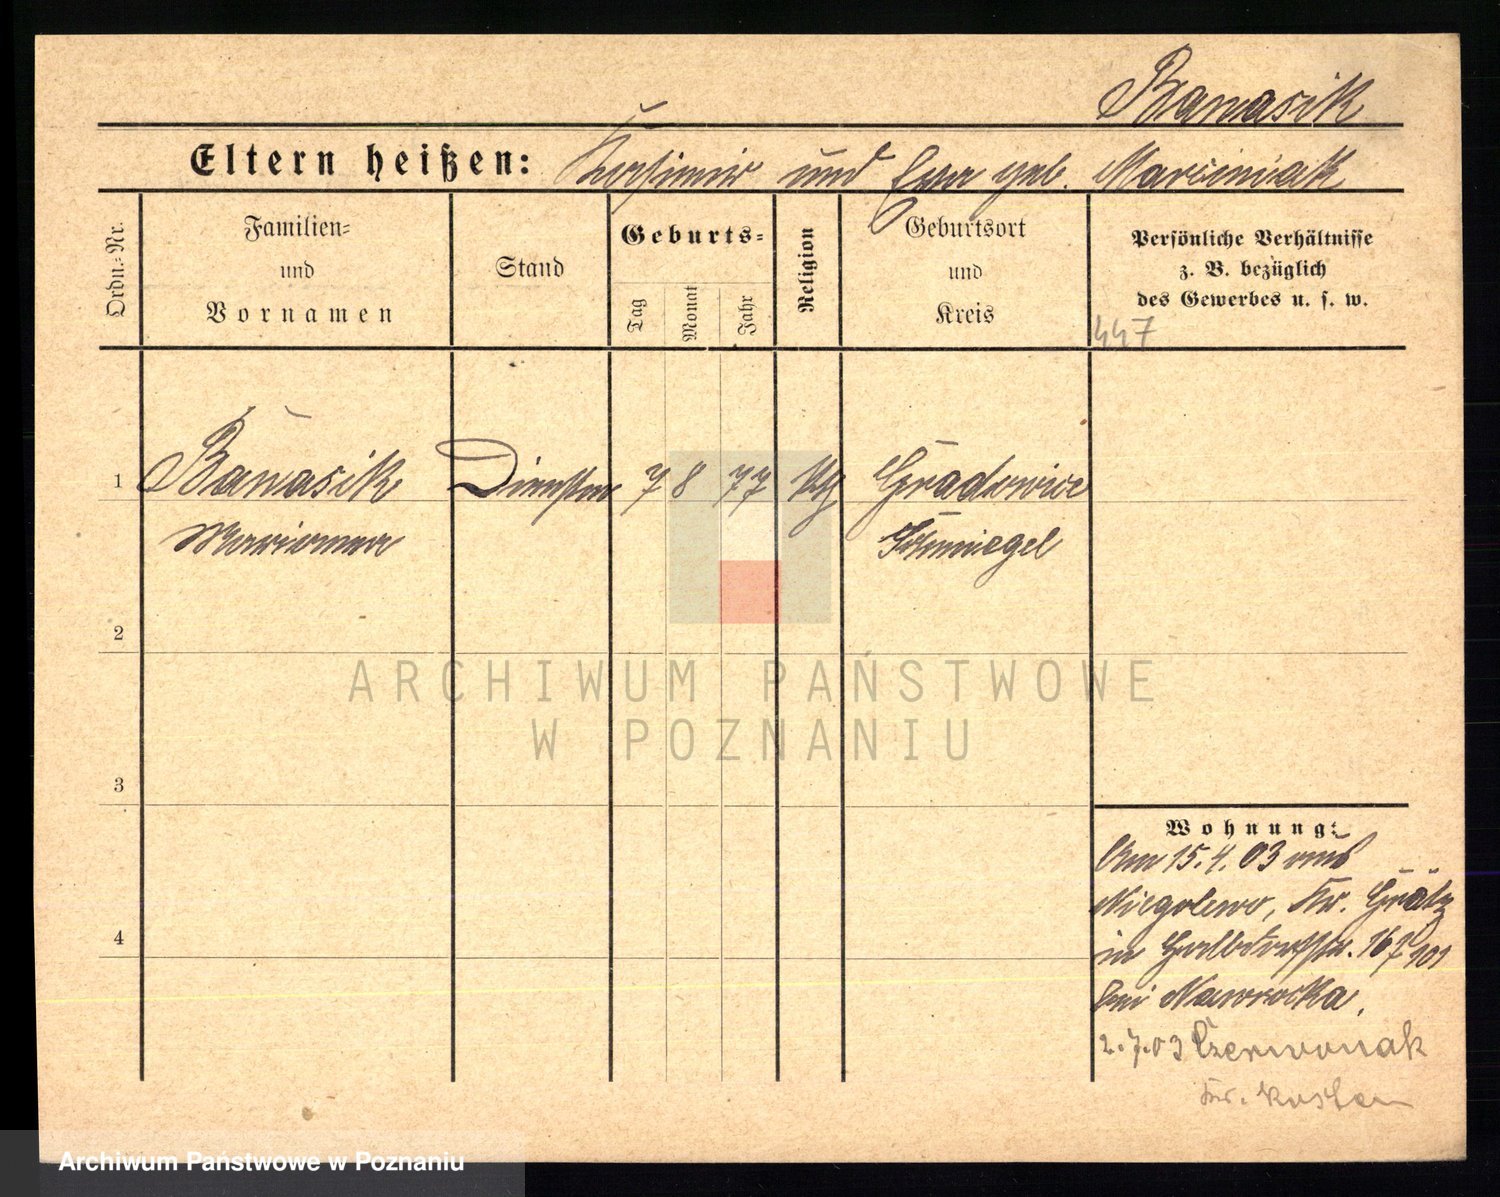 Banasik
Eltern heißen: Kasimir und Eva geb. Marciniak
Ordn.-Nr.
Familien-
und
Vornamen
Stand
Geburts-
Tag
Monat
Jahr
Religion
Geburtsort
und
Kreis
Persönliche Verhältnisse
z. B. bezüglich
des Gewerbes u. s. w.
447
1 Banasik 7 8 77 Gradowice
Marianna Schmiegel
2
3
4
Wohnung:
Am 15.4.03 aus
Niegolewo, Kr. Grätz
in Halbdorfstr. 16
bei Nawrocka,
2.7.03 Czerwonak
Kr. Kosten
ARCHIWUM PAŃSTWOWE
W POZNANIU
Archiwum Państwowe w Poznaniu